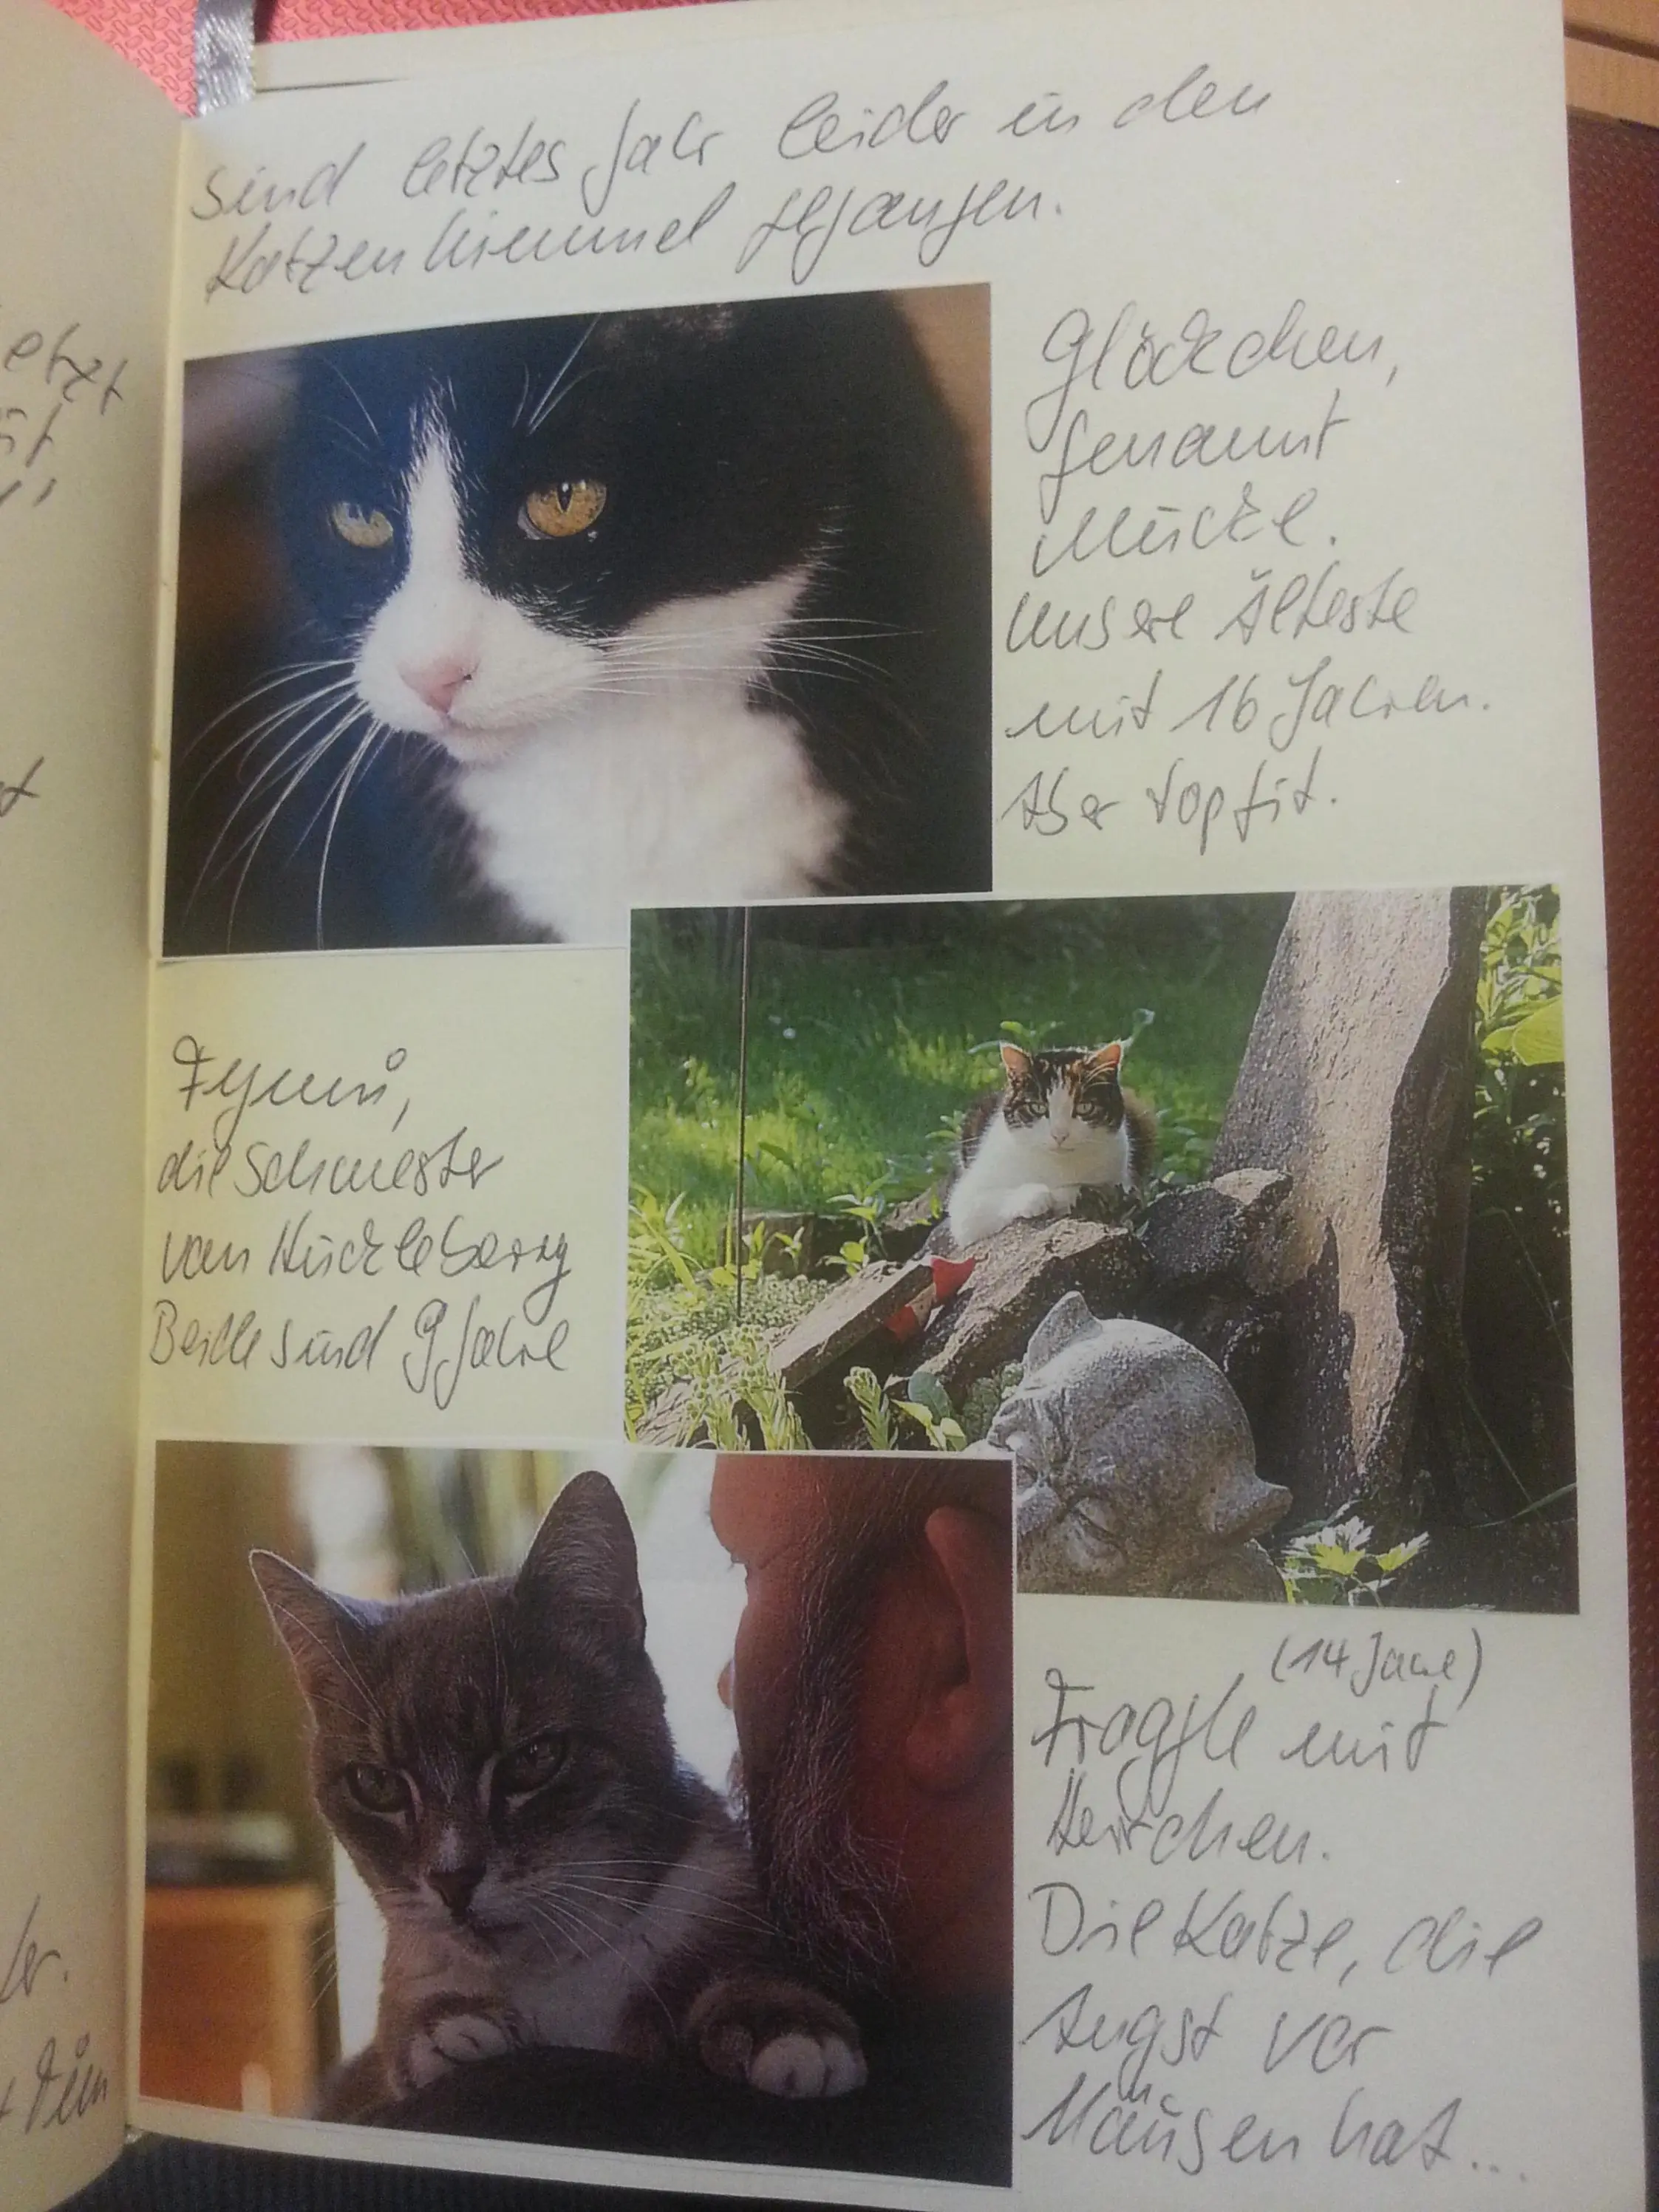 sind letztes Jahr leider in den
Katzenhimmel gegangen.
Glöckchen,
genannt
Mücke.
unsere Älteste
mit 16 Jahren.
Aber topfit.
die Schwester
von Huckleberry
Beide sind 9 Jahre
(14 Jahre)
Fraggle mit
Herrchen.
Die Katze, die
Angst vor
Mäusen hat...
etzt